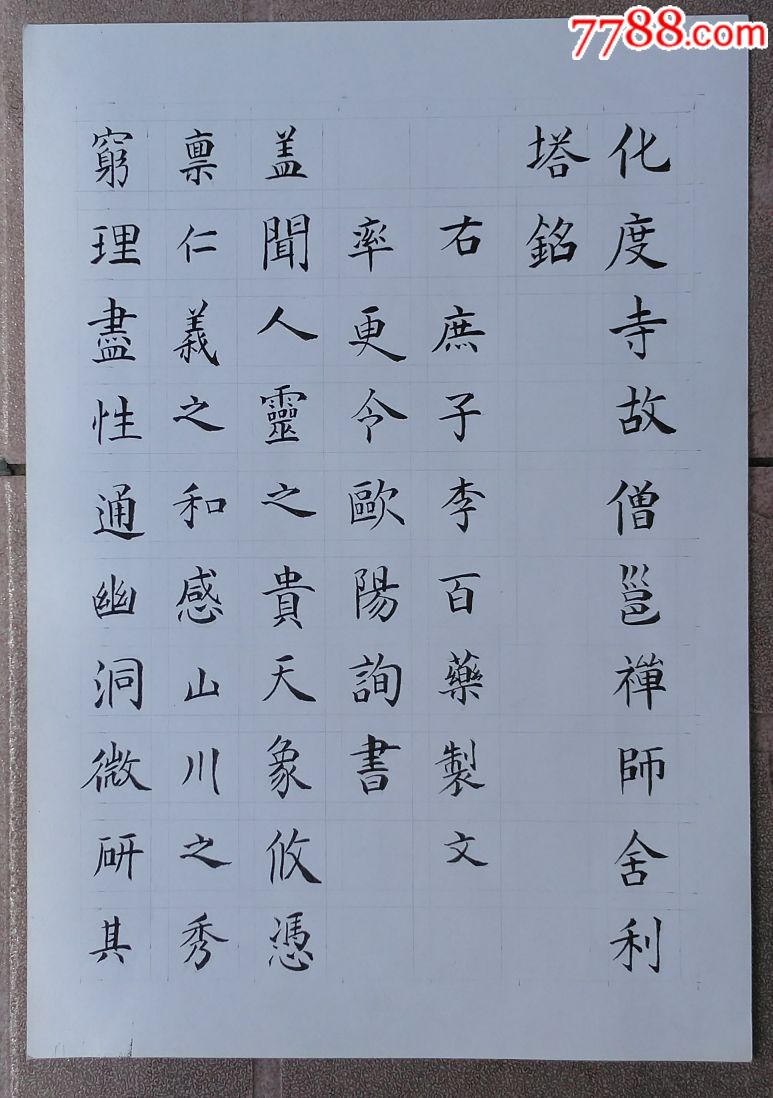 7788.com
化度寺故僧邕禪師舍利
塔銘
右庶子李百藥製文
率更令歐陽詢書
盖聞人靈之貴天象攸憑
禀仁義之和感山川之秀
窮理盡性通幽洞微研其